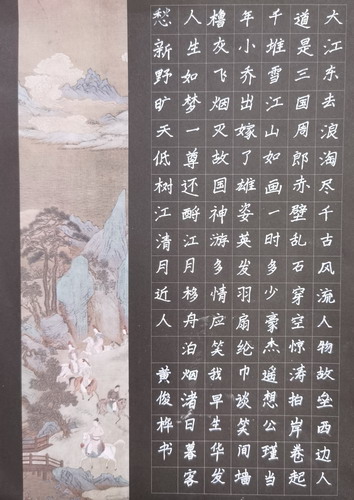 大江东去浪淘尽千古风流人物故垒西边人
道是三国周郎赤壁乱石穿空惊涛拍岸卷起
千堆雪江山如画一时多少豪杰遥想公瑾当
年小乔出嫁了雄姿英发羽扇纶巾谈笑间墙
橹灰飞烟灭故国神游多情应笑我早生华发
人生如梦一尊还酹江月移舟泊烟渚日暮客
愁新野旷天低树江清月近人 黄俊桦书